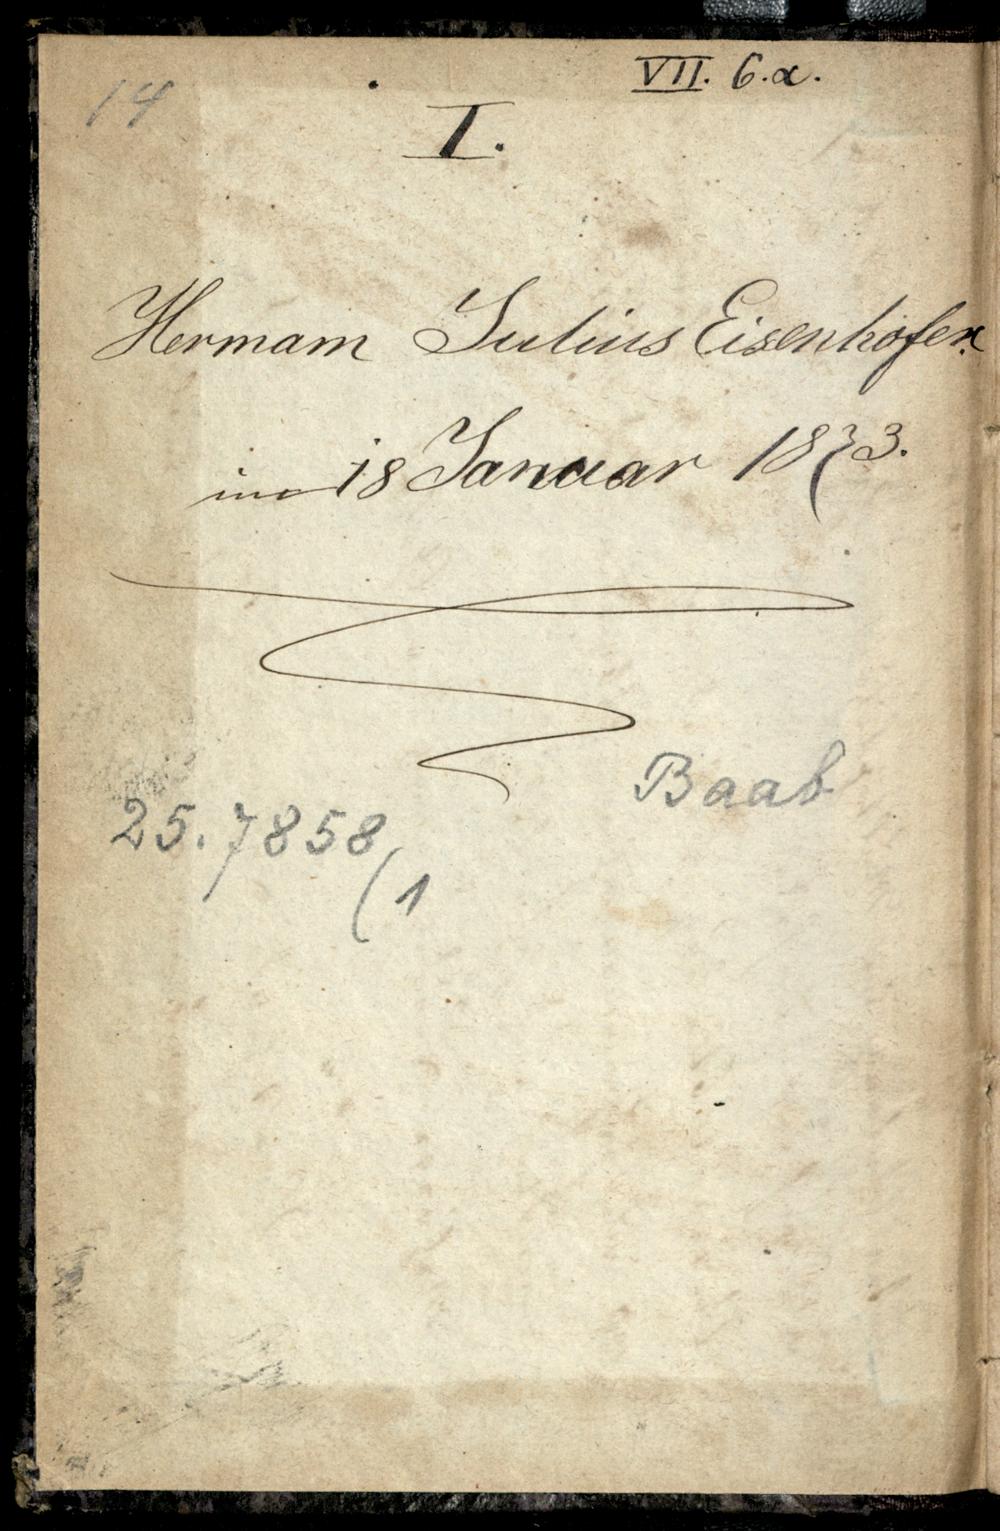 VII. 6.a.
14
I.
Hermann Julius Eisenhofer.
im 18 Januar 1873.
Baab
25.7858
(1